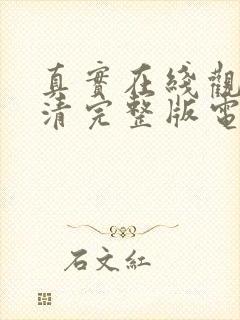 真實在綫觀
清完整版電
石文紅